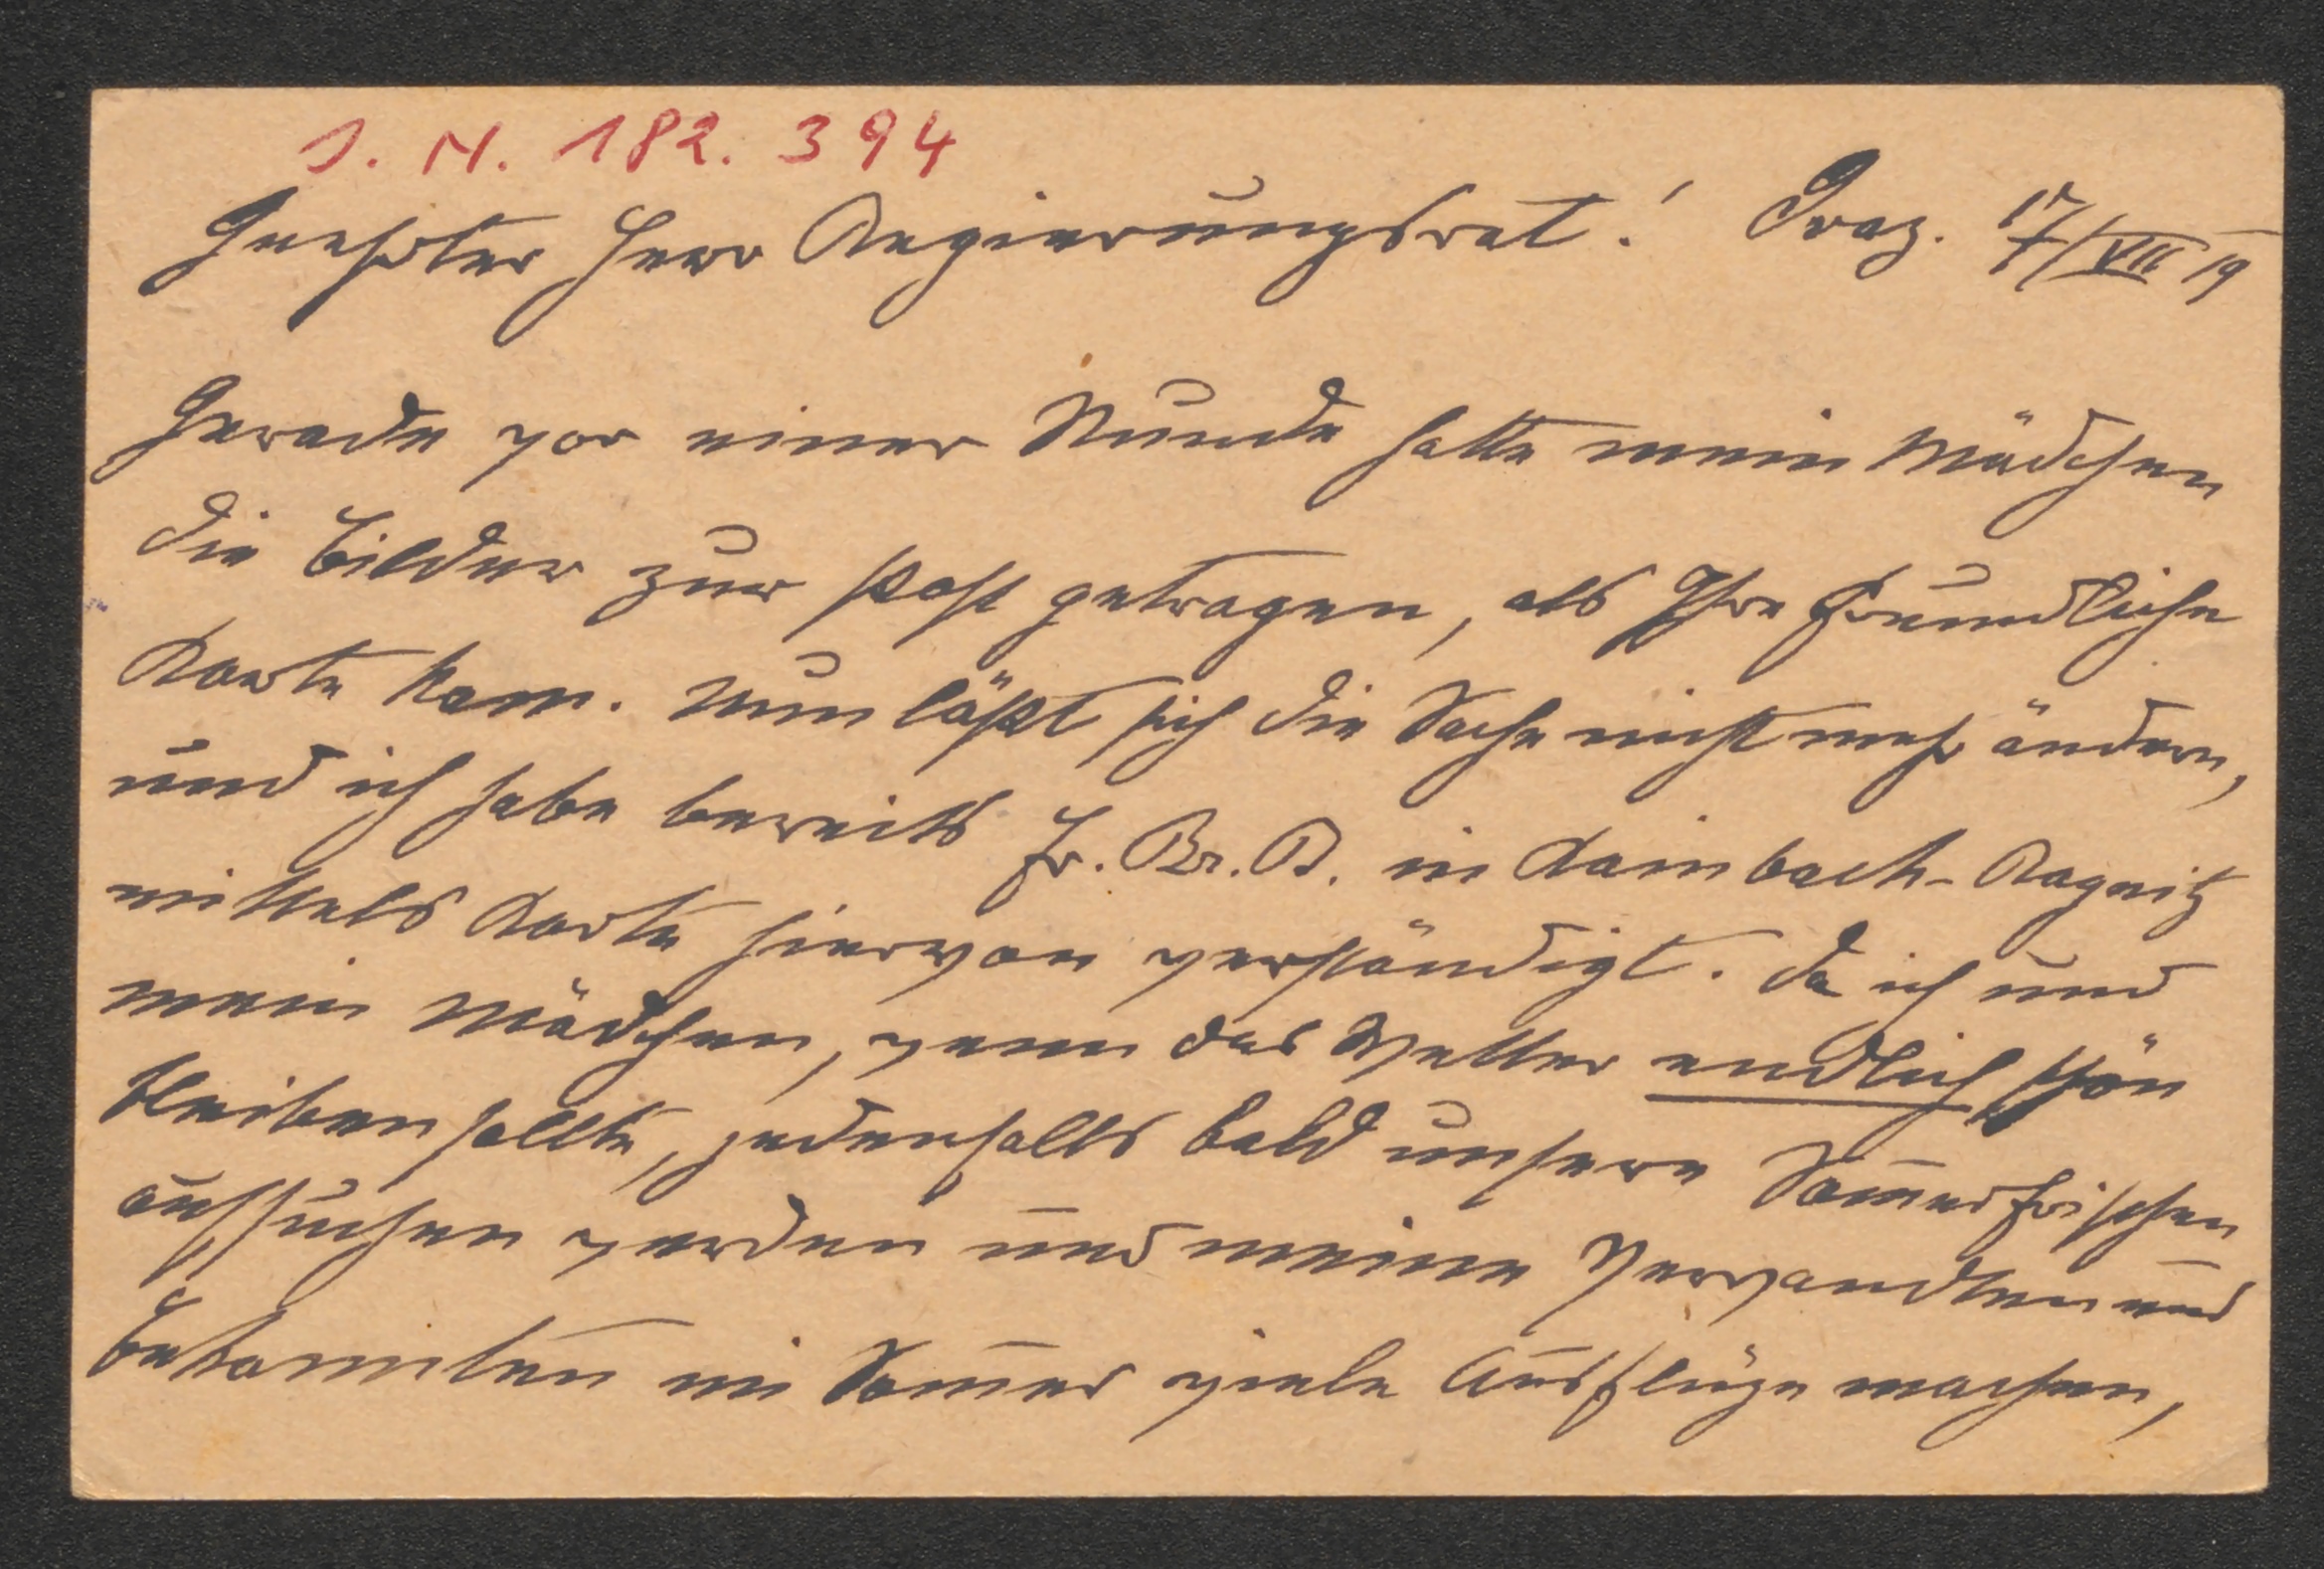 J. N. 182.394
Geehrter Herr Regierungsrat! Graz. 17/VII 19
Gerade vor einer Stunde hatte mein Mädchen
die Bilder zur Post getragen, als Ihre freundliche
Karte kam. Nun läßt sich die Sache nicht mehr ändern,
und ich habe bereits Fr. Br. D. in Kainbach-Ragnitz
mittels Karte hiervon verständigt. Da ich und
mein Mädchen, wenn das Wetter endlich schön
bleiben sollte, jedenfalls bald unsere Som̅erfrischen
aufsuchen werden und meine Verwandten und
Bekannten im Som̅er viele Ausflüge machen,